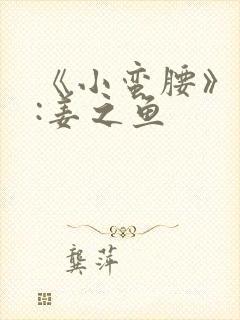 《小蛮腰》
:姜之鱼
龚萍